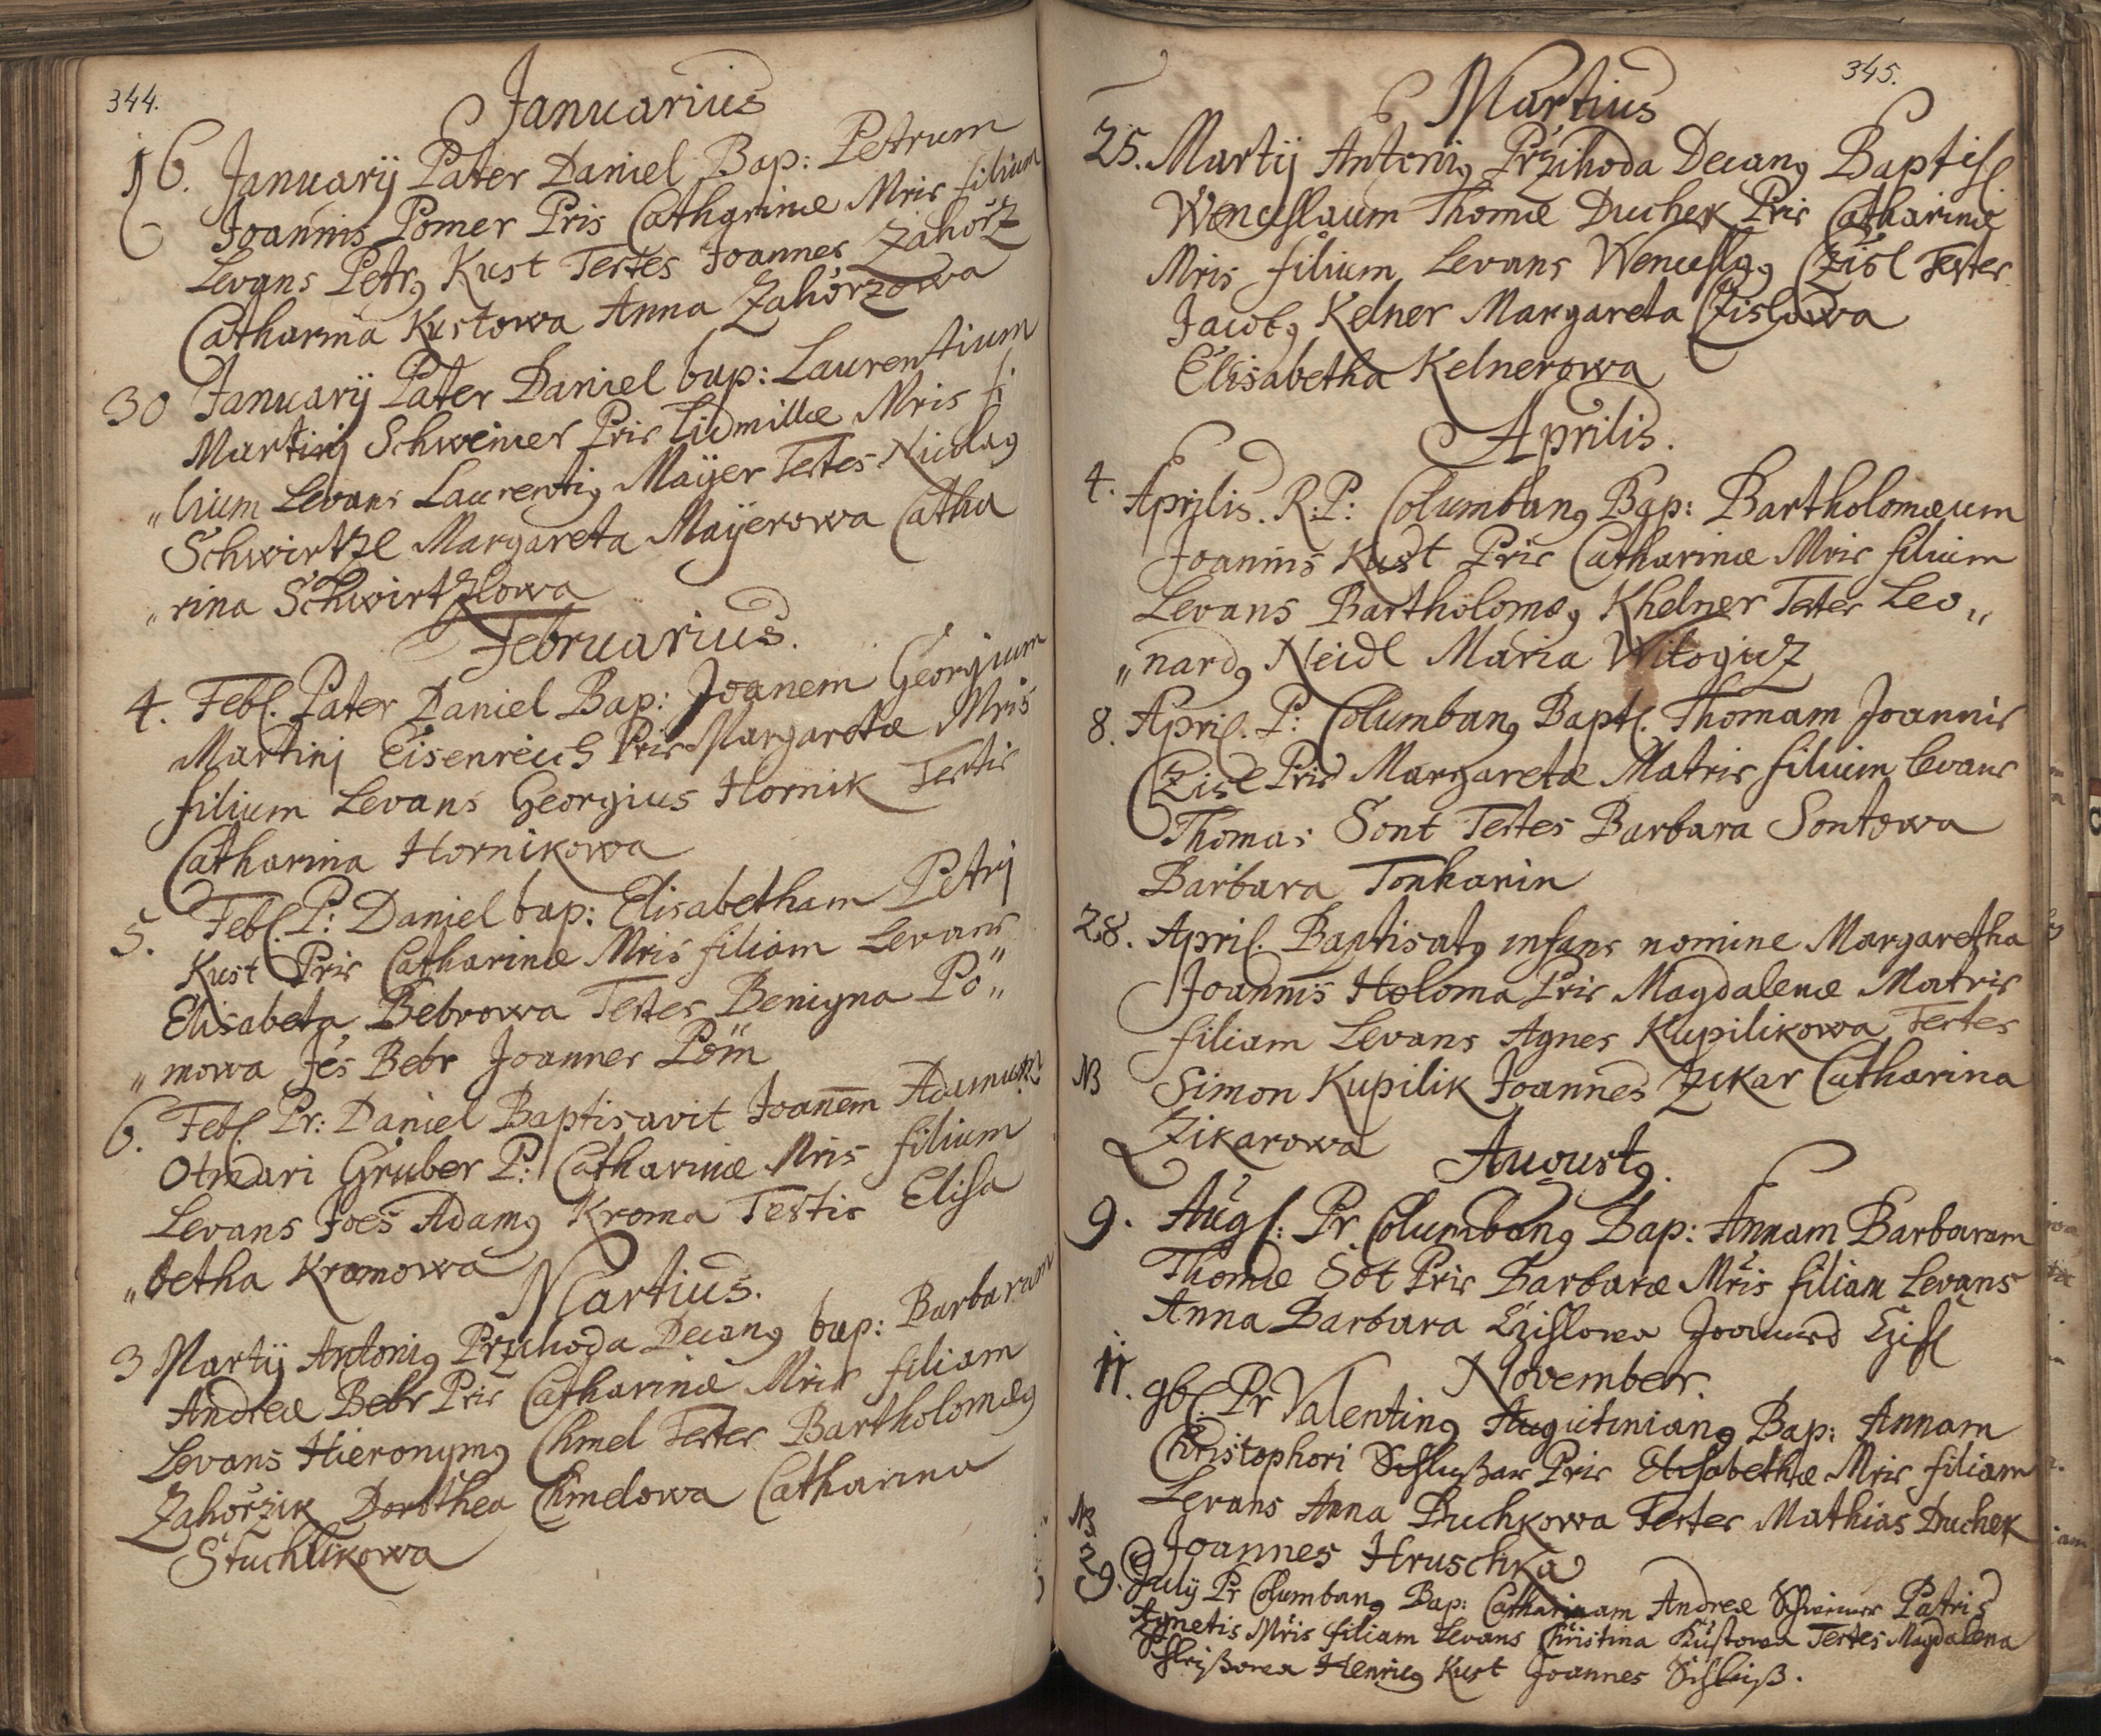 344.
Januarius
16. Januarij Pater Daniel Bap: Petrum
Joannis Pomer Pris Catharinæ Mris filium
Levans Petrꝯ Kust Testes Joannes Zahorz
Catharina Kustowa Anna Zahorzowa
30 Januarij Pater Daniel bap: Laurentium
Martinj Schweiner Pris Lidmillæ Mris fi
„lium Levans Laurentiꝯ Maÿer Testes Nicolaꝯ
Schwirtzl Margareta Maÿerowa Catha
„rina Schwirtzlowa
Februarius.
4. Febl. Pater Daniel Bap: Joanem Georgium
Martinj Eisenreich Pris Margaretæ Mris
filium Levans Georgius Hornik Testis
Catharina Hornikowa
5. Febl. P: Daniel bap: Elisabetham Petrj
Kust Pris Catharinæ Mris filiam Levans
Elisabeta Bebrowa Testes Benigna Pö„
„mowa Jes Bebr Joannes Pöm
6. Febl. Pr: Daniel Baptisavit Joanēm Adamum
Otmari Gruber P: Catharinæ Mris filium
Levans Joes Adamꝯ Kroma Testis Elisa
„betha Kromowa
Martius.
3 Martij Antoniꝯ Przihoda Decanꝯ bap: Barbaram
Andreæ Bebr Pris Catharinæ Mris filiam
Levans Hieronymꝯ Chmel Testes Bartholomæꝯ
Zahorzik Dorothea Chmelowa Catharina
Stuchlikowa
345.
Martius
25. Martij Antoniꝯ Przihoda Decanꝯ Baptisl.
Wenceslaum Thomæ Duchek Pris Catharinæ
Mris filium Levans Wenceslaꝯ Czisl Testes
Jacobꝯ Kelner Margareta Czislowa
Elisabetha Kelnerowa
Aprilis.
4. Aprilis. R:P: Columbanꝯ Bap: Bartholomæum
Joannis Kust Pris Catharinæ Mris filium
Levans Bartholomæꝯ Khelner Testes Leo„
„nardꝯ Neidl Maria
8. April. P: Columbanꝯ Baptl. Thomam Joannis
Czisl Pris Margaretæ Matris filium levans
Thomas Sont Testes Barbara Sontowa
Barbara Tonharin
28. April. Baptisatꝯ infans nomine Margaretha
Joannis Holoma Pris Magdalenæ Matris
filiam Levans Agnes Kupilikowa Testes
NB Simon Kupilik Joannes Zikar Catharina
Zikarowa
Augustꝯ.
9. Augl: Pr. Columbanꝯ Bap: Annam Barbaram
Thomæ Sot Pris Barbaræ Mris filiam Levans
Anna Barbara Czislowa Joannes Czisl
November.
11. 9bl. Pr Valentinꝯ Augustinianꝯ Bap: Annam
Christophori Pris Elisabethæ Mris filiam
Levans Anna Duchkowa Testes Mathias Duchek
Joannes Hruschka
NB
29. Julij Pr Columbanꝯ Bap: Catharinam Andreæ Schweiner Patris
Agnetis Mris filiam Levans Christina Kustowa Testes Magdalena
Henricꝯ Kust Joannes